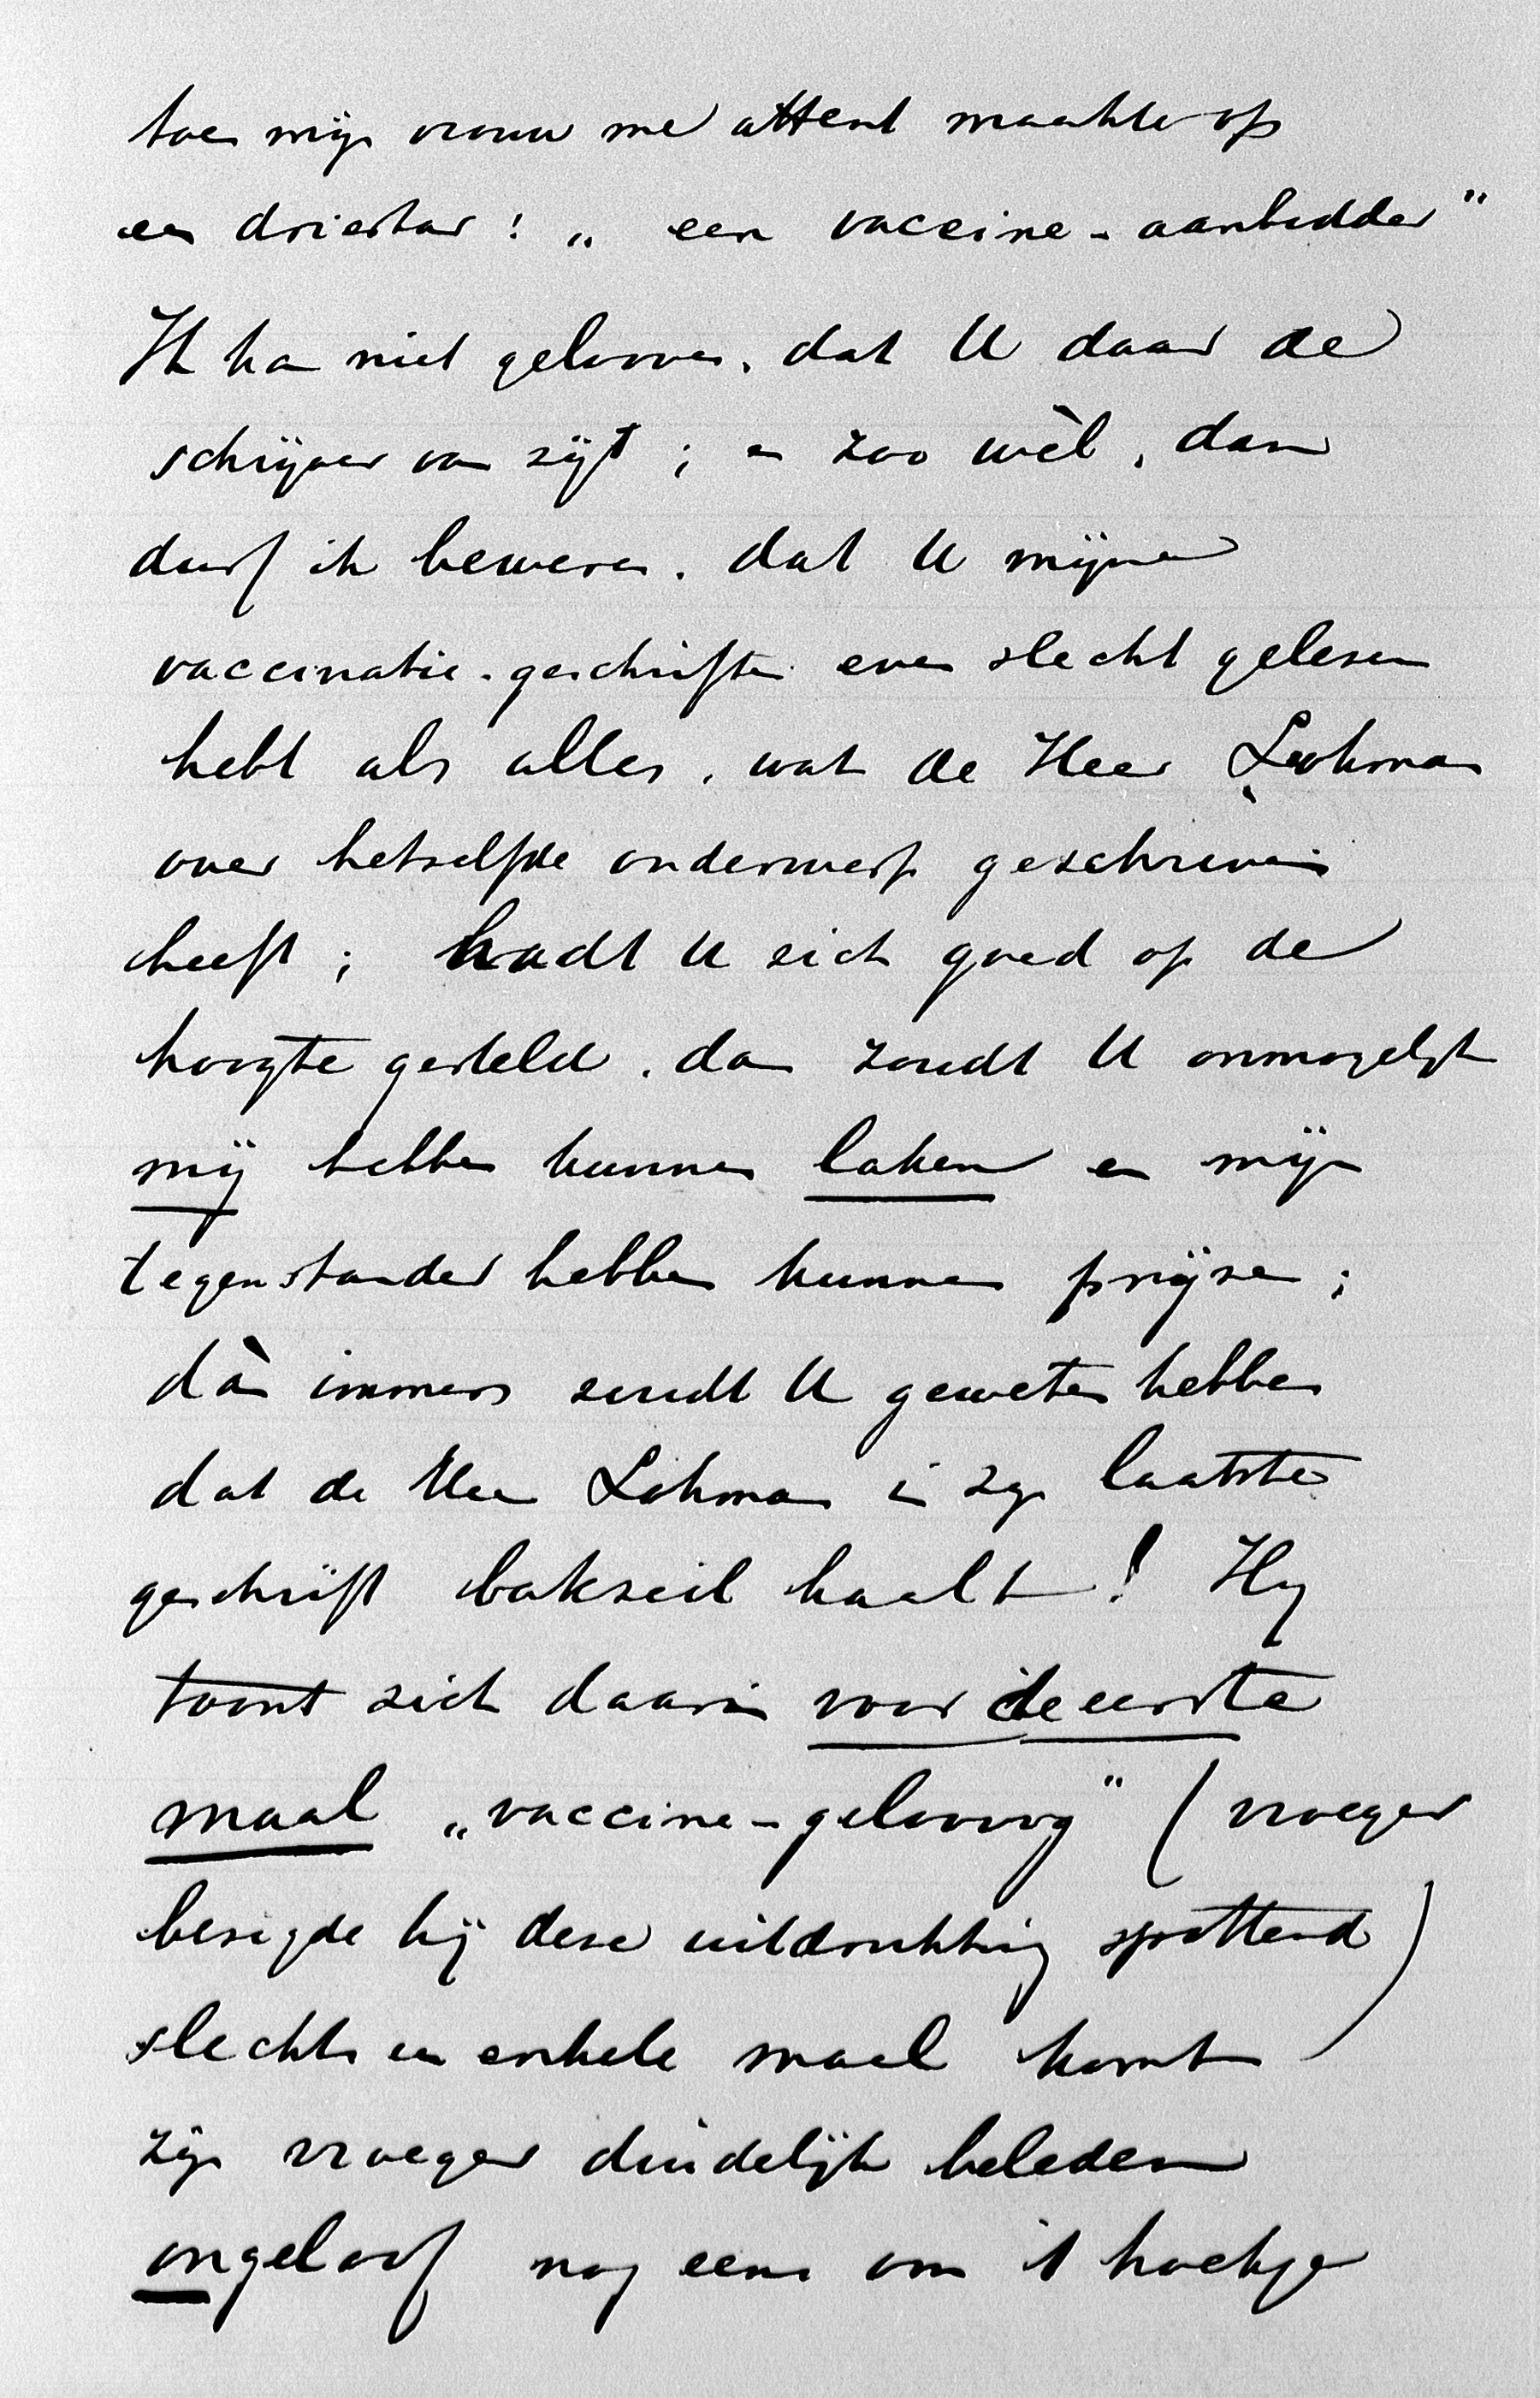 toen mijn vrouw me attent maakte op
een driestar: „een vaccine-aanbidder"
Ik kan niet gelooven, dat U daar de
schrijver van zijt; en zoo wèl, dan
durf ik beweren, dat U mijne
vaccinatie-geschriften even slecht gelezen
hebt als alles, wat de Heer Lohman
over hetzelfde onderwerp geschreven
heeft; hadt U zich goed op de
hoogte gesteld, dan zoudt U onmogelijk
mij hebben kunnen laken en mijn
tegenstander hebben kunnen prijzen;
dàn immers zoudt U geweten hebben
dat de Heer Lohman in zijn laatste
geschrift bakzeil haalt! Hij
toont zich daarin voor de eerste
maal „vaccine-geloovig" (vroeger
bezigde hij deze uitdrukking spottend)
slechts een enkele maal komt
zijn vroeger duidelijk beleden
ongeloof nog eens om 't hoekje